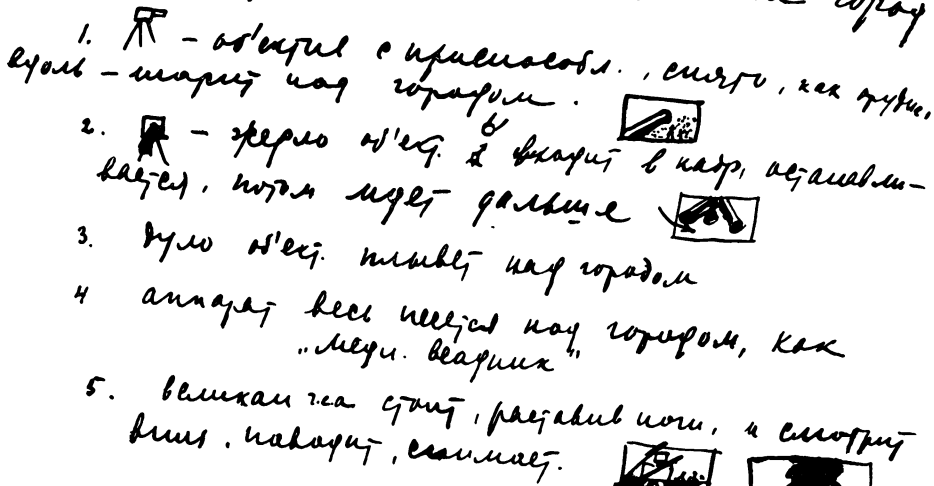 город
1. – об'ектив с приспособл., снято, как орудие,
вдоль – шарит над городом.
2. – жерло об'ект. входит в кадр, останавли–
вается, потом идет дальше
3. Дуло об'ект. плывет над городом
4 аппарат весь несется над городом, как
„медн. всадник"
5. великан стоит, расставив ноги, и смотрит
вниз, наводит, снимает.